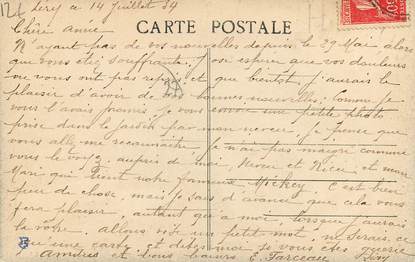 Livry ce 14 Juillet 34
CARTE POSTALE
Chère Année
N'ayant pas de vos nouvelles depuis le 29 Mai alors
que vous étiez souffrante. J'ose espérer que vos douleurs
ne vous ont pas repris et que bientôt j'aurais le
plaisir d'avoir de vos bonnes nouvelles. Comme je
vous l'avais promis, je vous envoie une petite photo
prise dans le jardin par mon neveu. je pense que
vous allez me reconnaître, je n'ai pas maigri comme
vous le voyez, auprès de moi, Neveu et Nièce et mon
Mari qui tient notre fameux Mickey. C'est bien
peu de chose, mais je sais d'avance que cela vous
fera plaisir, autant qu'à moi, lorsque j'aurais
la vôtre. Allons vite un petit mot, ne serais ce
que une carte, et dites moi si vous êtes guérie
Amitiés et bons baisers E. Farceau